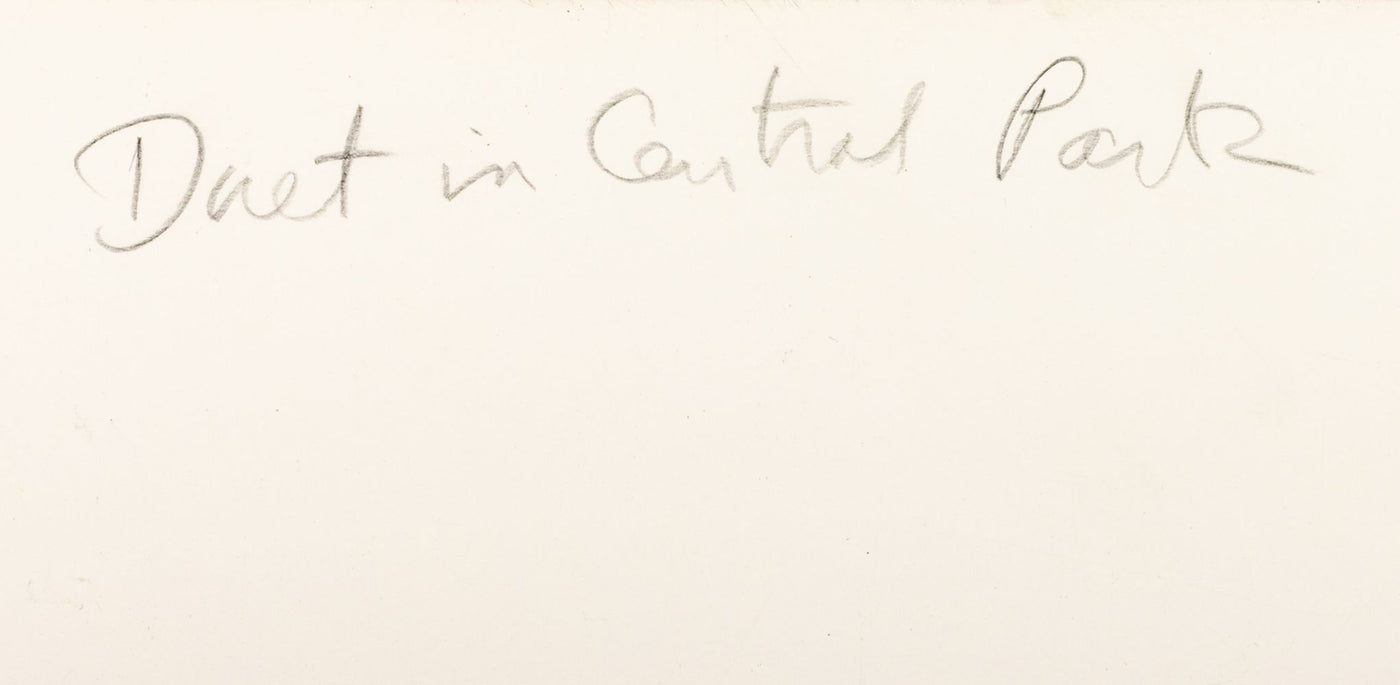 Duet in Central Park